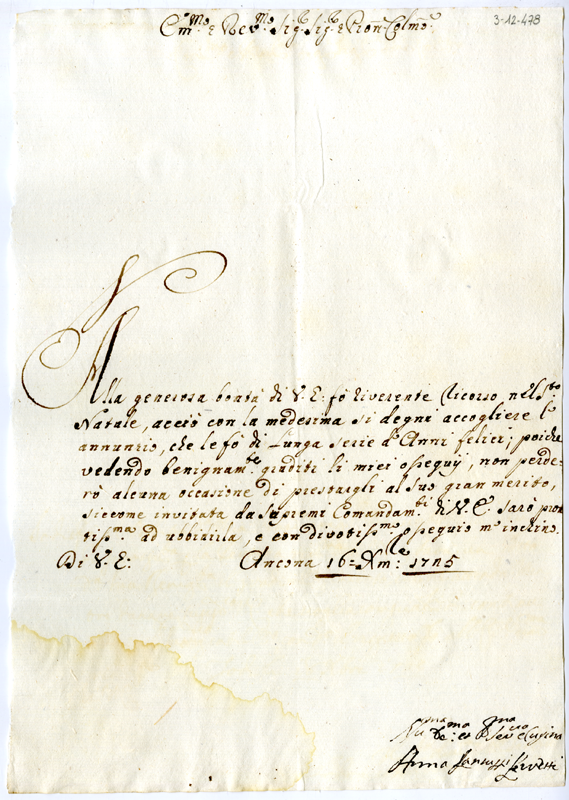 3-12-478
Em.mo e Rev.mo Sig.re Sig.re e Pron Colmo
Alla generosa bontà di V. E: fò riverente ricorso nel S.to
Natale, acciò con la medesima si degni accogliere l'
annunzio, che le fò di Lunga serie d'Anni felici; poiche
vedendo benignam.te graditi li miei ossequij, non perde=
rò alcuna occasione di prestargli al suo gran merito,
siccome invitata da supremi Comandam.ti di V. E. sarò pron
tiss.ma ad ubbidirla, e con divotiss.mo ossequio m'inchino.
Di V. E:
Ancona 16= Xm:re 1725
Anna